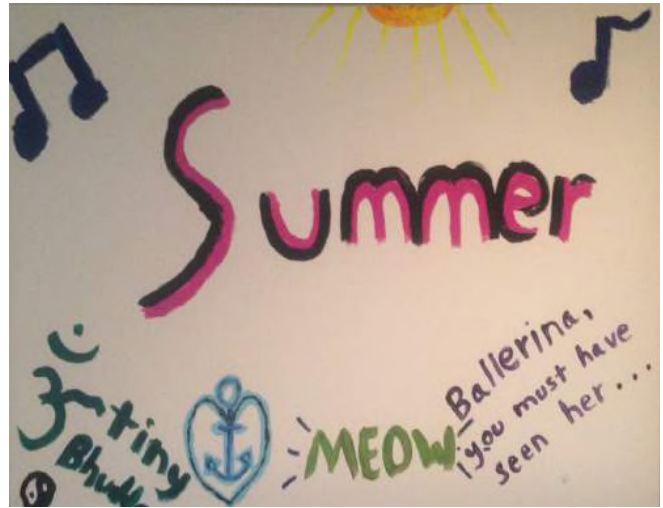 Summer
ॐ
tiny
MEOW
Ballerina,
you must have
seen her...